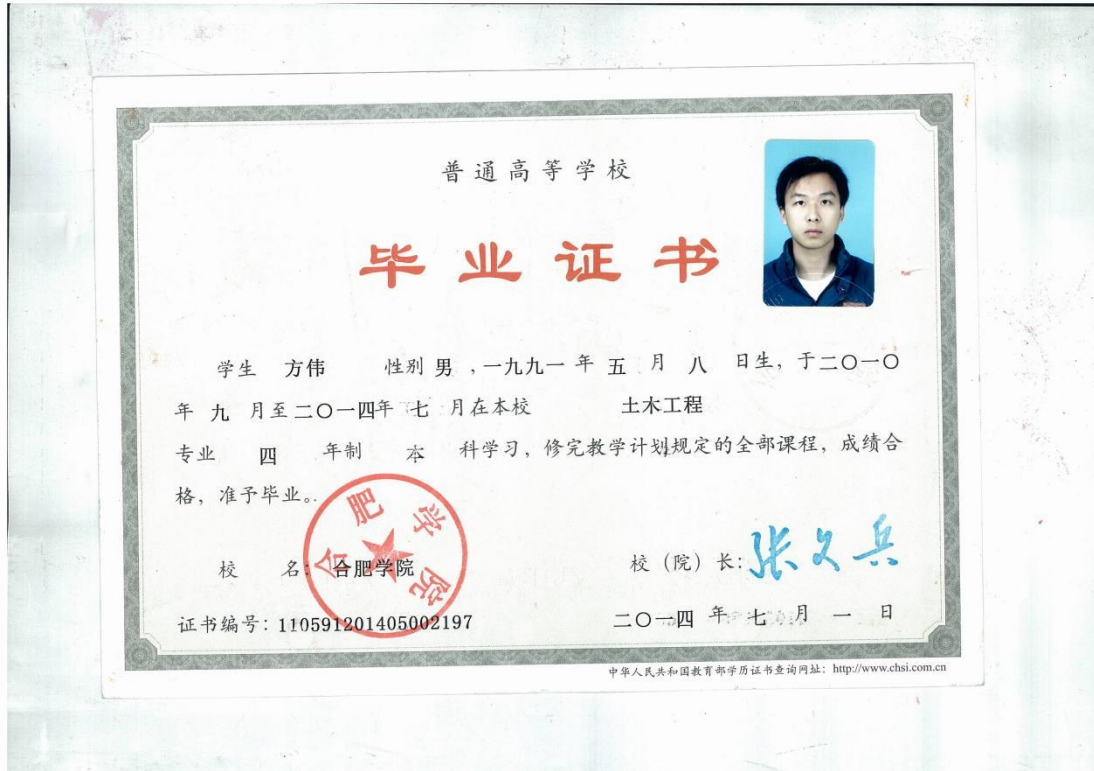 普通高等学校
毕业证书
学生 方伟 性别 男，一九九一 年 五 月 八 日生，于二〇一〇
年 九 月至二〇一四年 七 月在本校 土木工程
专业 四 年制 本 科学习，修完教学计划规定的全部课程，成绩合
格，准予毕业。
合肥学院
校 名：合肥学院
校（院）长：张文兵
证书编号：110591201405002197
二〇一四 年 七 月 一 日
中华人民共和国教育部学历证书查询网址：http://www.chsi.com.cn